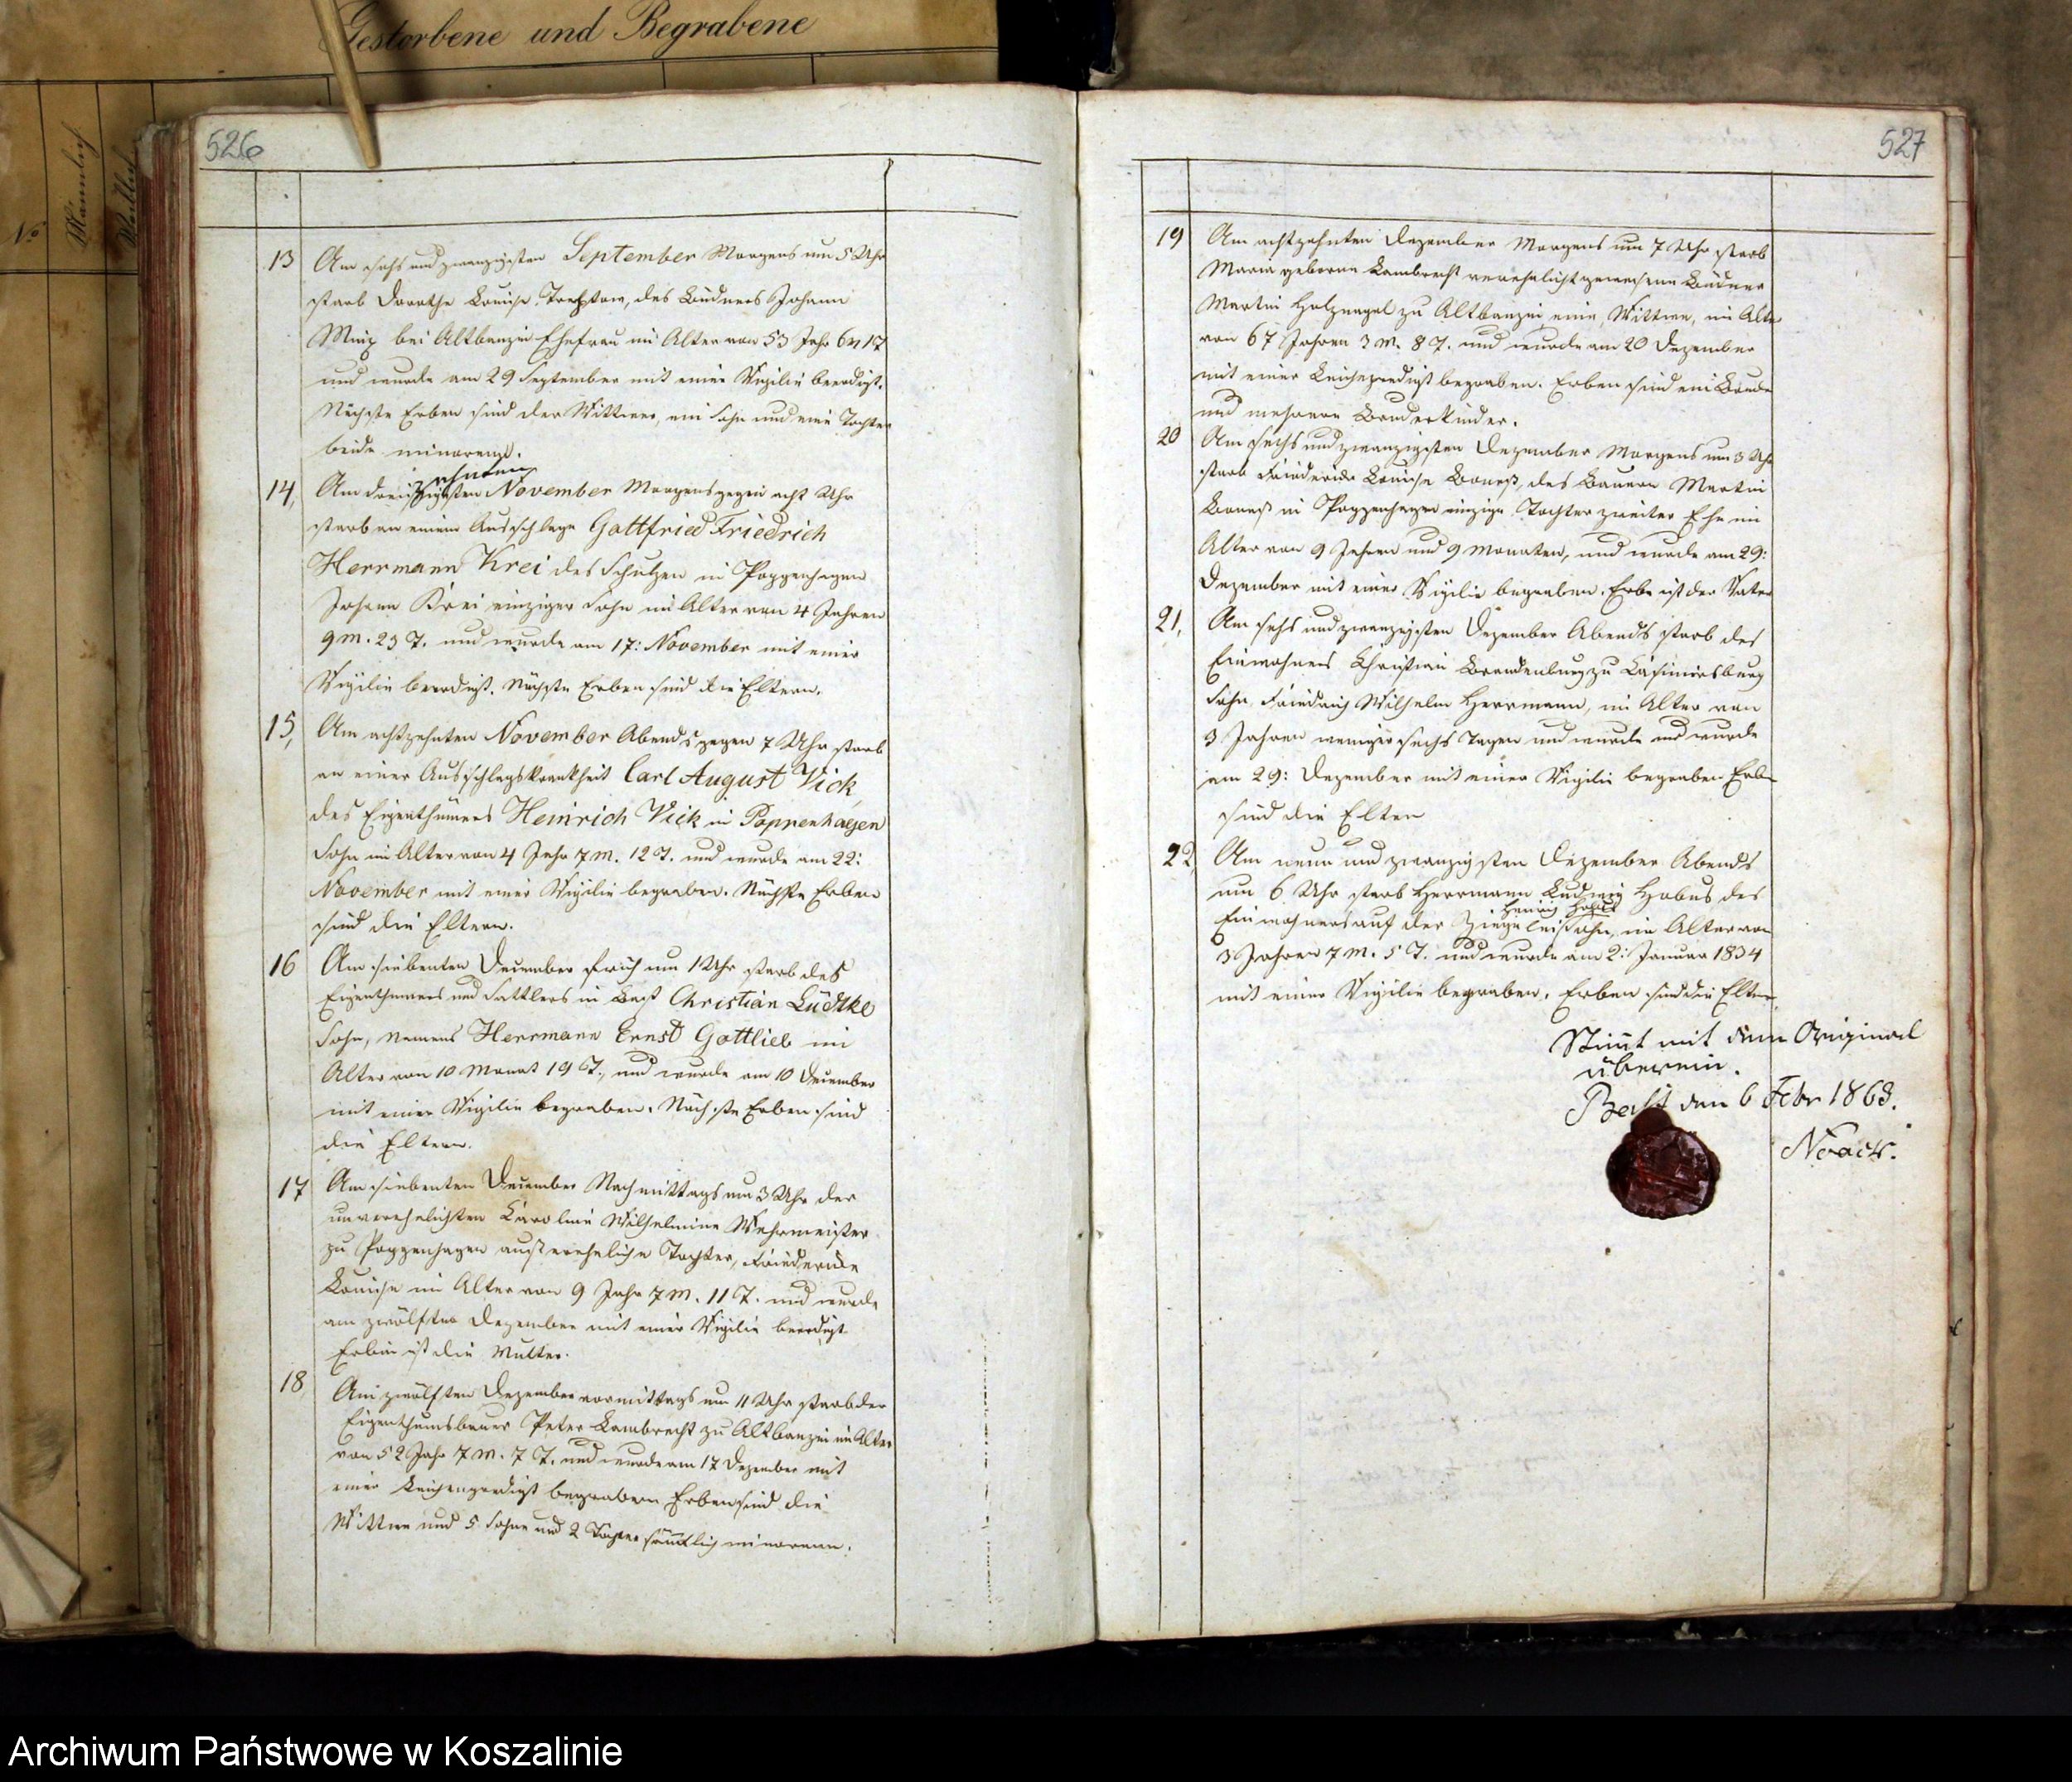 Gestorbene und Begrabene
No
Männlich
Weiblich
526
13 Am sechs und zwanzigsten September Morgens um 5 Uhr
starb Dorothe Louise Treptow, des Büdners Johann
Minx bei Altbanzin Ehefrau im Alter von 53 Jahr 6 m 17
und wurde am 29 September mit einer Vigilie beerdigt.
Nächste Erben sind der Wittwer, ein Sohn und eine Tochter
beide minorenn.
14, Am dreizehnten November Morgens gegen acht Uhr
starb an einem Ausschlage Gottfried Friedrich
Herrmann Krei des Schulzen in Poppenhagen
Johann Krei einziger Sohn im Alter von 4 Jahren
9 M. 23 T. und wurde am 17: November mit einer
Vigilie beerdigt. Nächste Erben sind die Eltern.
15, Am achtzehnten November Abends gegen 7 Uhr starb
an einer Ausschlagskrankheit Carl August Vick,
des Eigenthümers Heinrich Vick in Poppenhagen
Sohn im Alter von 4 Jahr 7 M. 12 T. und wurde am 22:
November mit einer Vigilie begraben. Nächste Erben
sind die Eltern.
16 Am siebenten December früh um 1 Uhr starb des
Eigenthümers und Sattlers in Bast Christian Lüdtke
Sohn, Namens Herrmann Ernst Gottlieb im
Alter von 10 Monat 19 T., und wurde am 10 December
mit einer Vigilie begraben. Nächste Erben sind
die Eltern.
17 Am siebenten December Nachmittags um 3 Uhr der
unverehelichten Caroline Wilhelmine Wehrmeister
zu Poppenhagen außereheliche Tochter, Friederike
Louise im Alter von 9 Jahr 7 M. 11 T. und wurde
am zwölften Dezember mit einer Vigilie beerdigt.
Erbin ist die Mutter.
18 Am zwölften Dezember vormittags um 11 Uhr starb der
Eigenthumsbauer Peter Lambrecht zu Altbanzin im Alter
von 52 Jahr 7 M. 7 T. und wurde am 17 Dezember mit
einer Leichenpredigt begraben Erben sind die
Wittwe und 5 Sohne und 2 Tochter sämtlich minorenn.
527
19 Am achtzehnten Dezember Morgens um 7 Uhr starb
Maria geborne Lambrecht verehelicht gewesene Büdner
Martin Holznagel zu Altbanzin eine Wittwe, im Alter
von 67 Jahren 3 M. 8 T. und wurde am 20 Dezember
mit einer Leichepredigt begraben. Erben sind ein Bruder
und mehrere Bruderkinder.
20 Am sechs und zwanzigsten Dezember Morgens um 3 Uhr
starb Friederike Louise Boneß, des Bauern Martin
Boneß in Poppenhagen einzige Tochter zweiter Ehe im
Alter von 9 Jahren und 9 Monaten, und wurde am 29:
Dezember mit einer Vigilie begraben. Erbe ist der Vater
21, Am sechs und zwanzigsten Dezember Abends starb des
Einwohners Christian Brandenburg zu Casimirsburg
Sohn, Friedrich Wilhelm Herrmann, im Alter von
3 Jahren weniger sechs Tagen und wurde und wurde
am 29: Dezember mit einer Vigilie begraben Erbe
sind die Elten
22, Am neun und zwanzigsten Dezember Abends
um 6 Uhr starb Herrmann Ludwig Habus des
Heinrich Habus
Einwohners auf der Ziegelei Sohn, im Alter von
3 Jahren 7 M. 5 T. und wurde am 2: Januar 1834
mit einer Vigilie begraben. Erben sind die Eltern.
Stimt mit dem Original
überein.
Bast den 6 Febr 1863.
Noack.
Archiwum Państwowe w Koszalinie